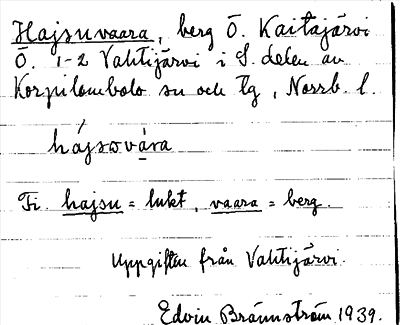 Hajsuvaara, berg Ö. Kaitajärvi
Ö. 1-2 Vahtijärvi i S. delen av
Korpilombolo sn och tg, Norrb. l.
hájsωvạra
Fi. hajsu = lukt, vaara = berg.
Uppgiften från Vahtijärvi.
Edvin Brännström 1939.